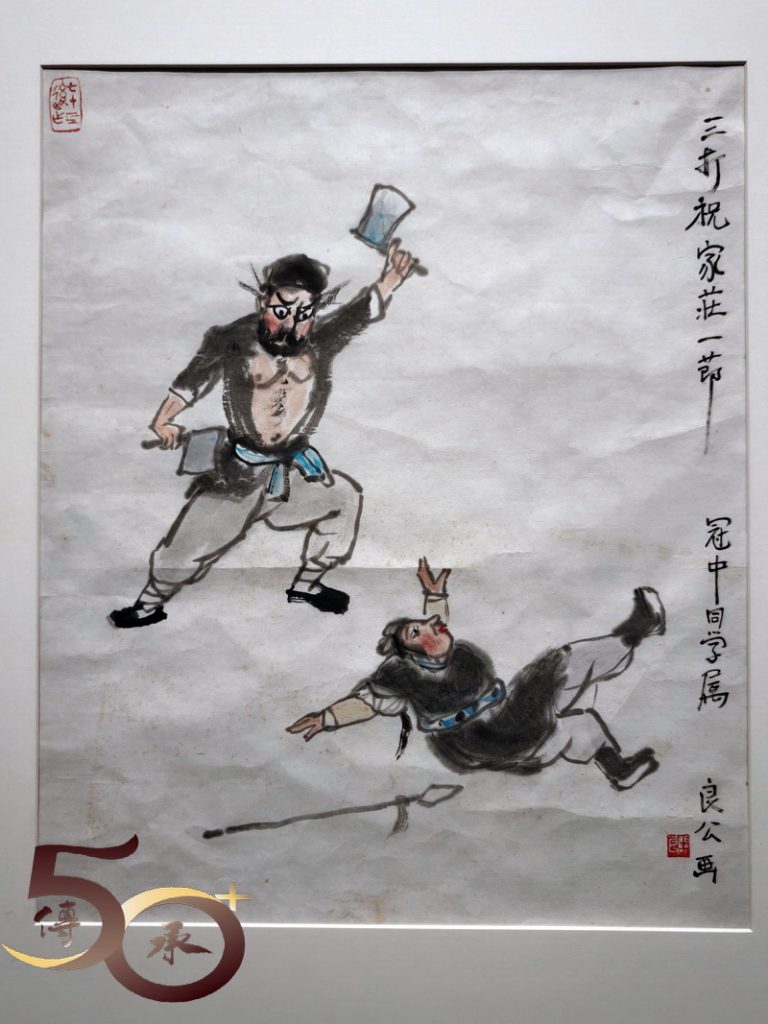 三打祝家莊一節
冠中同学属
良公画
50+
傳承